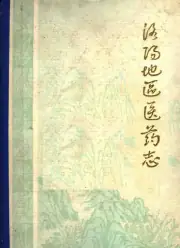 洛阳地区医药志